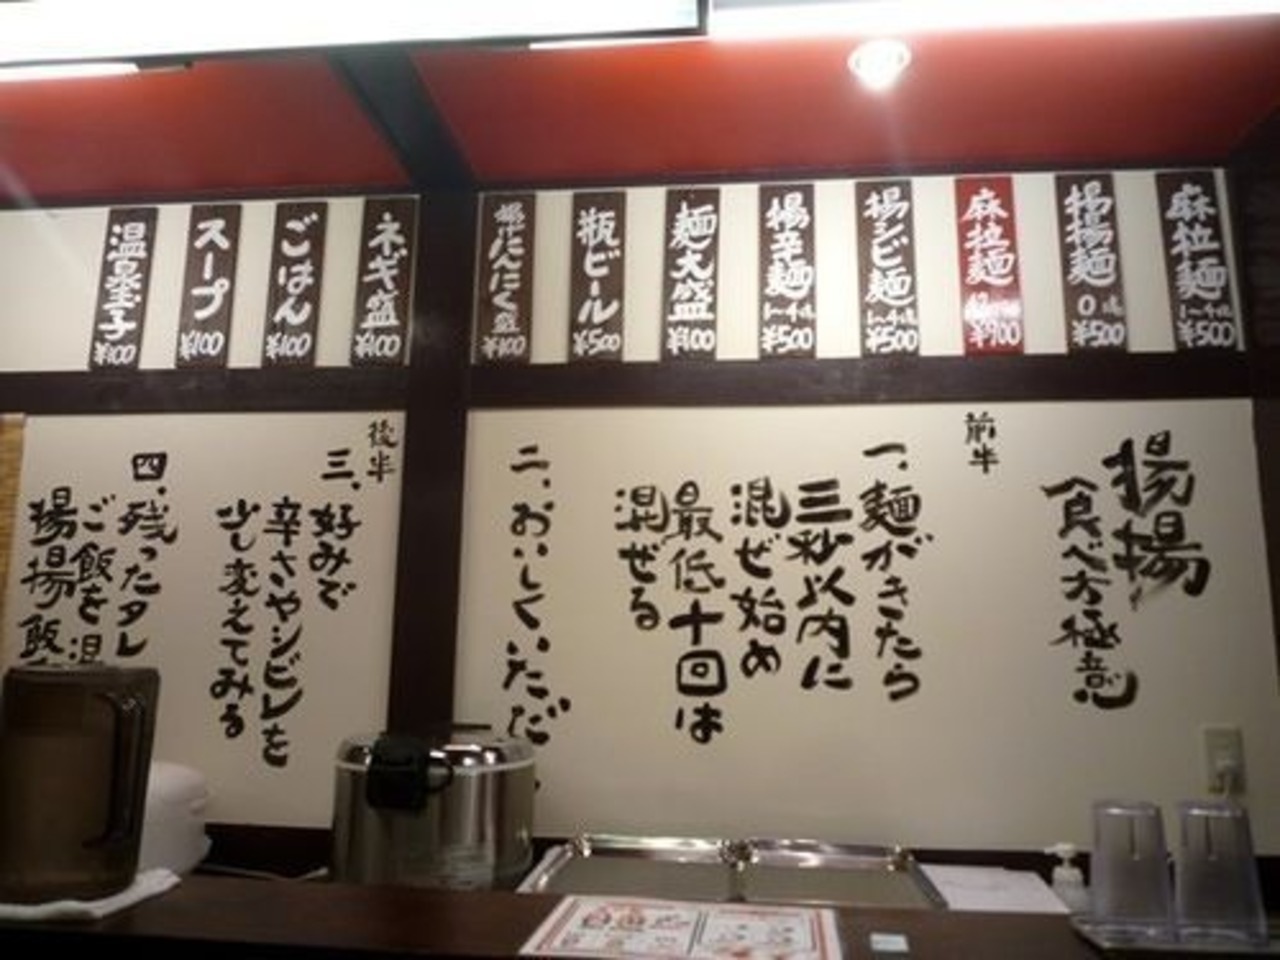 麻拉麺
1〜4
¥500
揚揚麺
0
¥500
麻拉麺
¥900
揚シビ麺
1〜4
¥500
揚辛麺
1〜4
¥500
麺大盛
¥100
瓶ビール
¥500
にんにく盛
¥100
ネギ盛
¥100
ごはん
¥100
スープ
¥100
温泉玉子
¥100
揚揚
食べ方極意
前半
一、麺がきたら
三秒以内に
混ぜ始め
最低十回は
混ぜる
二、おいしくいただ
後半
三、好みで
辛さやシビレを
少し変えてみる
四、残ったタレ
ご飯を混
揚揚飯